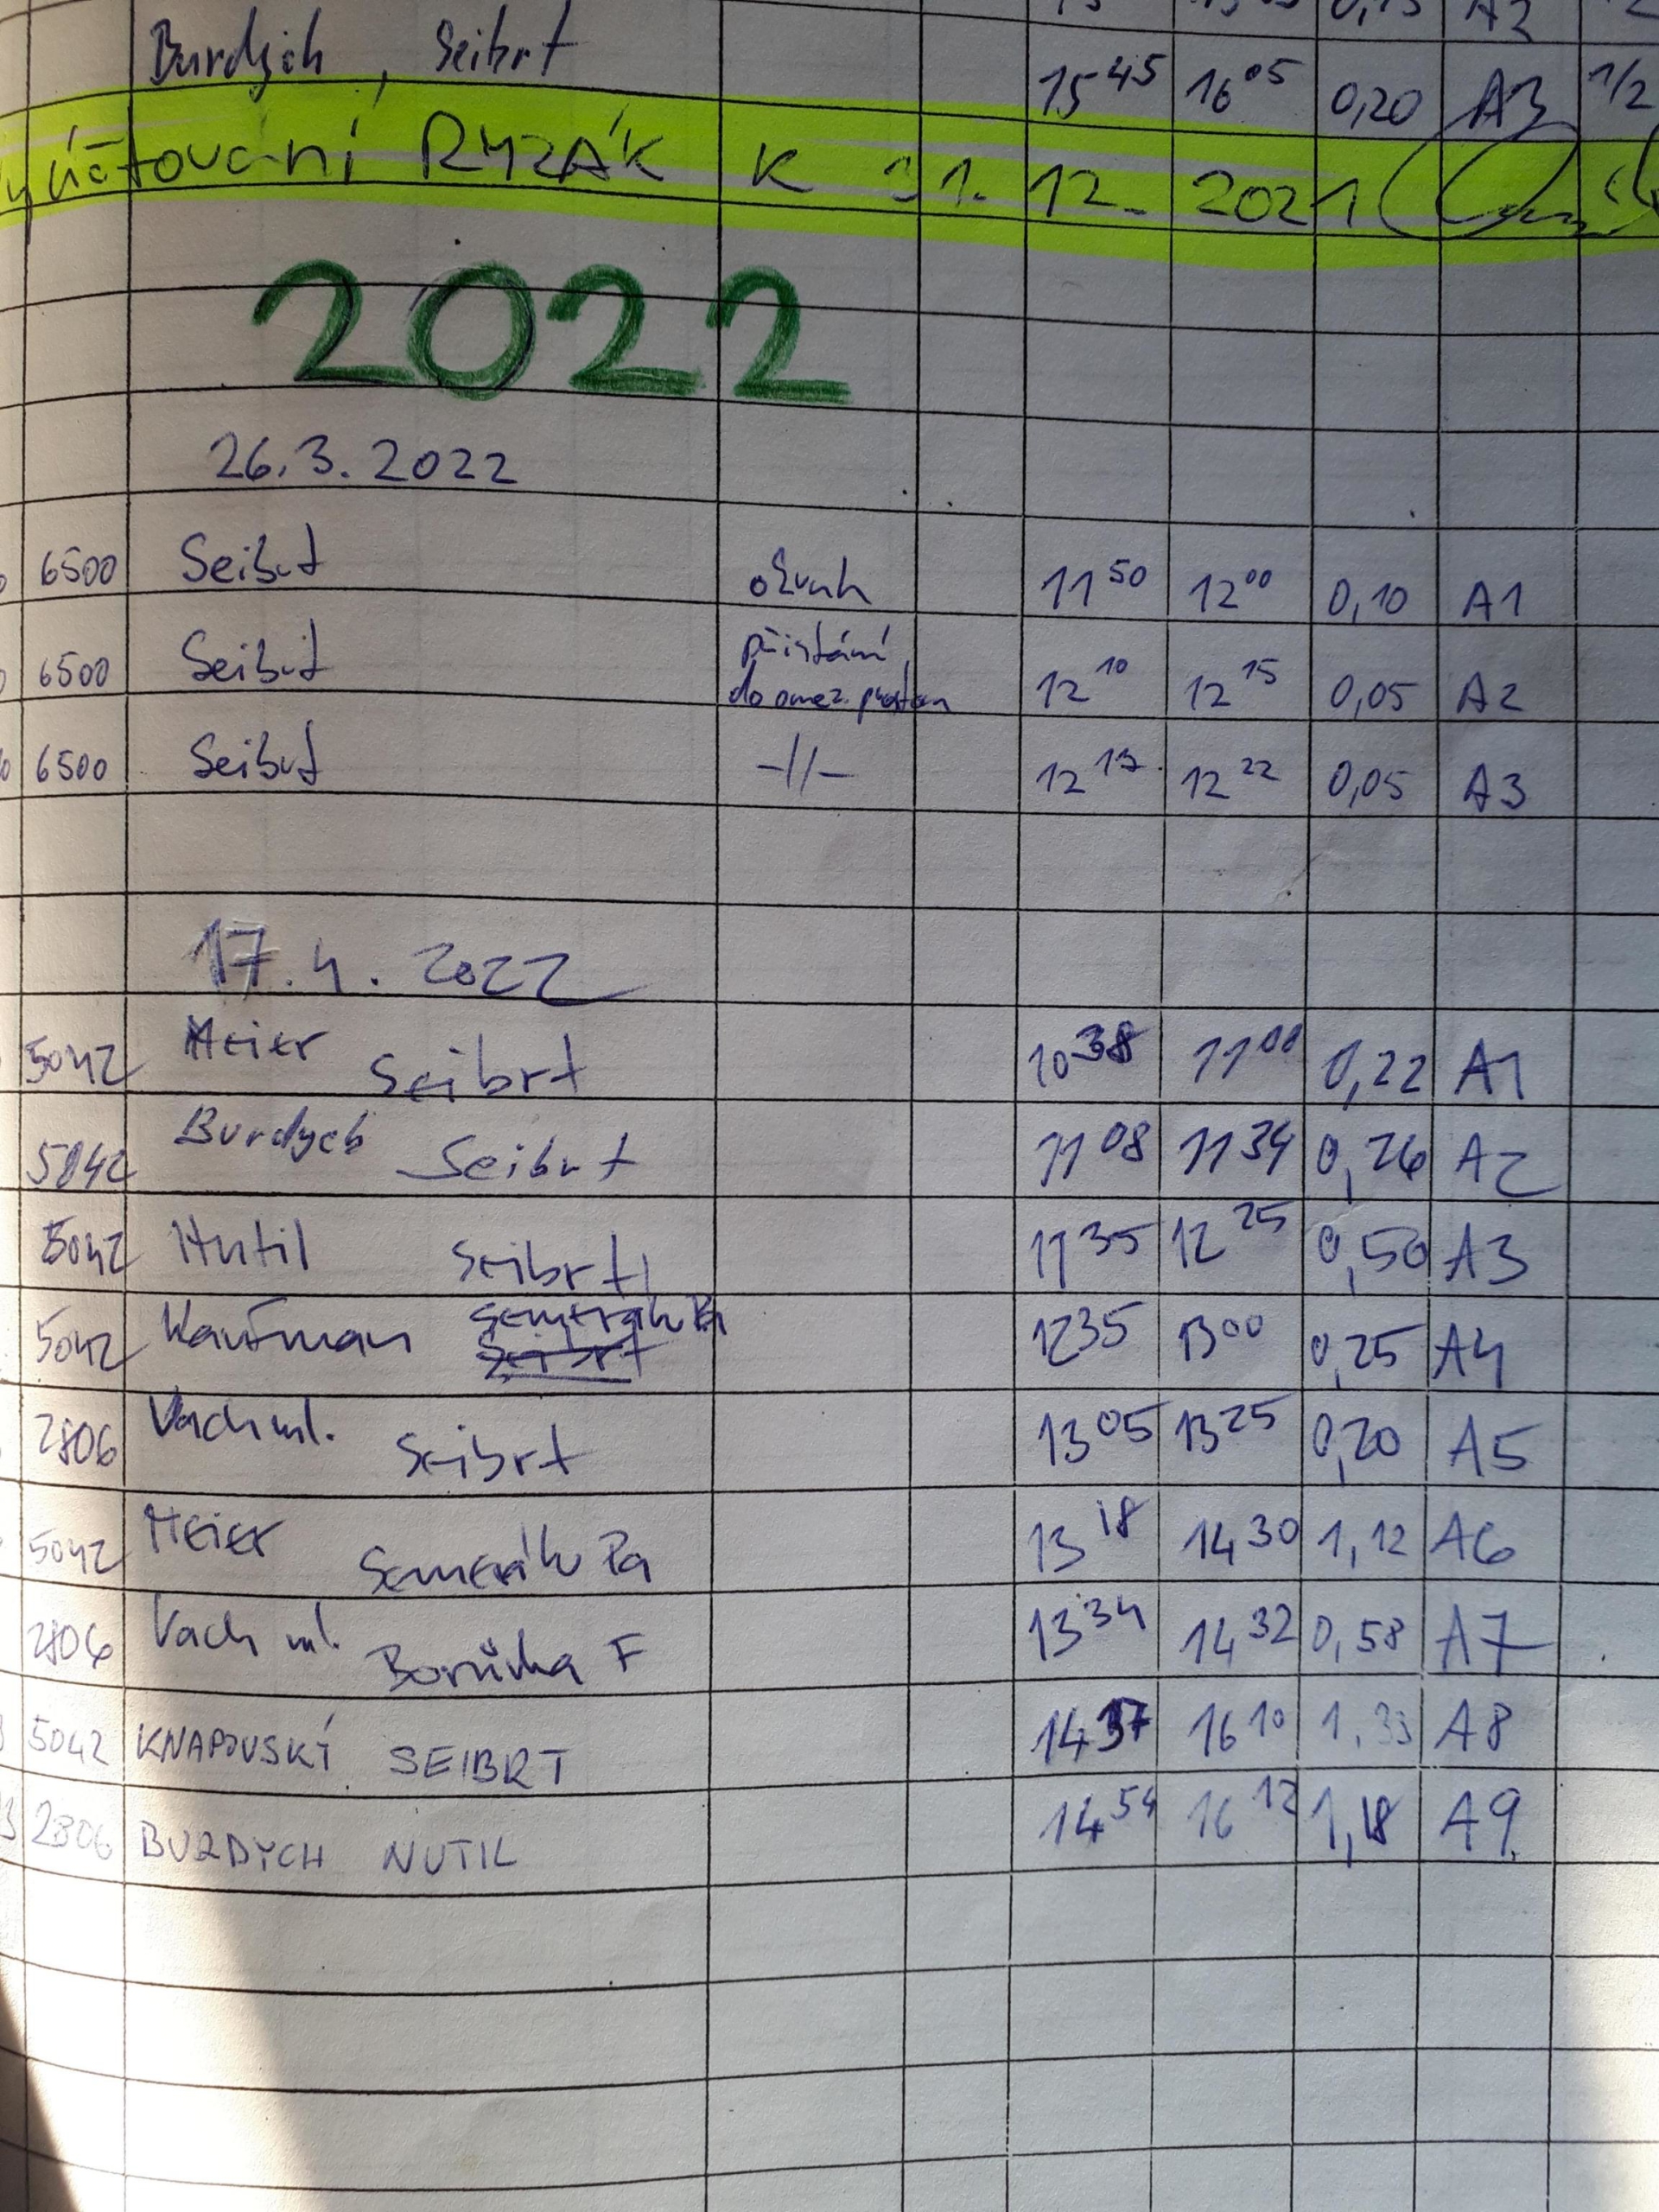 A3
Burdych, Seibrt 15 45 16 05 0,20 A3 1/2
yúčtování RYZÁK K 31. 12. 2021
2022
26.3.2022
6500 Seibrt okruh 11 50 12 00 0,10 A1
6500 Seibrt přistání do omez. prostoru 12 10 12 15 0,05 A2
6500 Seibrt -//- 12 17 12 22 0,05 A3
17.4.2022
5042 Meier Seibrt 10 38 11 00 0,22 A1
5042 Burdych Seibrt 11 08 11 34 0,26 A2
5042 Nutil Seibrt 11 35 12 25 0,50 A3
Semerák Pa
5042 Kaufman Seibrt 12 35 13 00 0,25 A4
2806 Vach ml. Seibrt 13 05 13 25 0,20 A5
5042 Meier Semerák Pa 13 18 14 30 1,12 A6
2806 Vach ml. Borůvka F 13 34 14 32 0,58 A7
5042 KNAPOVSKÝ SEIBRT 14 37 16 10 1,33 A8
2806 BURDYCH NUTIL 14 54 16 12 1,18 A9